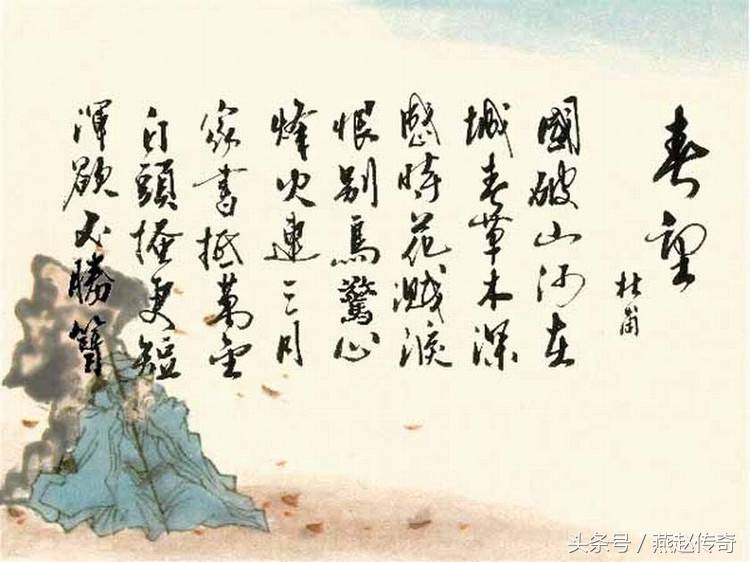 春望
杜甫
國破山河在
城春草木深
感時花濺淚
恨別鳥驚心
烽火連三月
家書抵萬金
白頭搔更短
渾欲不勝簪
头条号 / 燕赵传奇